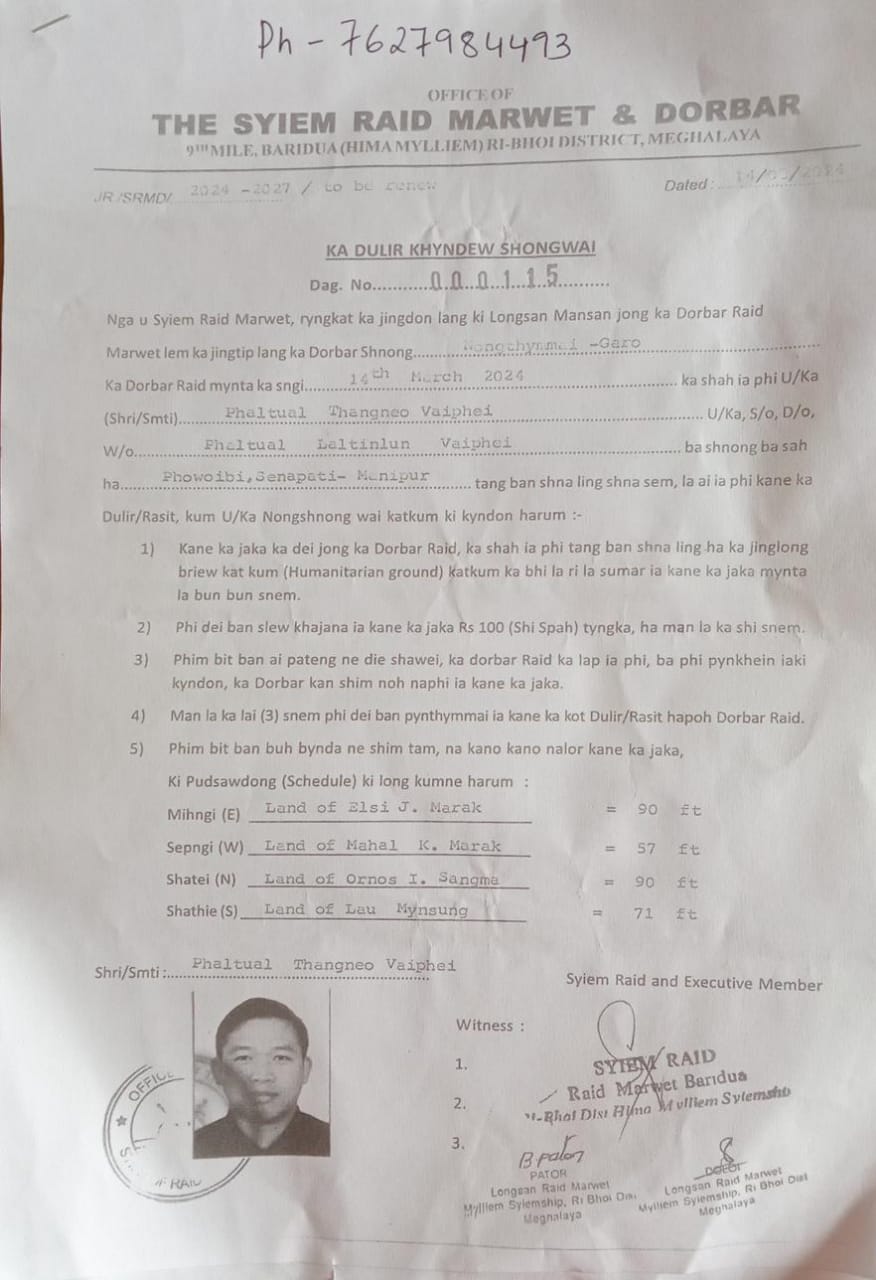 Ph - 7627984493
OFFICE OF
THE SYIEM RAID MARWET & DORBAR
9TH MILE, BARIDUA (HIMA MYLLIEM) RI-BHOI DISTRICT, MEGHALAYA
JR /SRMD/ 2024 -2027 / to be renew Dated : 14/03/2024
KA DULIR KHYNDEW SHONGWAI
Dag. No...........0.0..0..1..1.5..........
Nga u Syiem Raid Marwet, ryngkat ka jingdon lang ki Longsan Mansan jong ka Dorbar Raid
Marwet lem ka jingtip lang ka Dorbar Shnong.......... Nongthymmai -Garo
Ka Dorbar Raid mynta ka sngi........ 14th March 2024 ........ ka shah ia phi U/Ka
(Shri/Smti)........ Phaltual Thangneo Vaiphei ........ U/Ka, S/o, D/o,
W/o........ Phaltual Laltinlun Vaiphei ........ ba shnong ba sah
ha........ Phowoibi,Senapati- Manipur ........ tang ban shna ling shna sem, la ai ia phi kane ka
Dulir/Rasit, kum U/Ka Nongshnong wai katkum ki kyndon harum :-
1) Kane ka jaka ka dei jong ka Dorbar Raid, ka shah ia phi tang ban shna ling ha ka jinglong
briew kat kum (Humanitarian ground) katkum ka bhi la ri la sumar ia kane ka jaka mynta
la bun bun snem.
2) Phi dei ban slew khajana ia kane ka jaka Rs 100 (Shi Spah) tyngka, ha man la ka shi snem.
3) Phim bit ban ai pateng ne die shawei, ka dorbar Raid ka lap ia phi, ba phi pynkhein iaki
kyndon, ka Dorbar kan shim noh naphi ia kane ka jaka.
4) Man la ka lai (3) snem phi dei ban pynthymmai ia kane ka kot Dulir/Rasit hapoh Dorbar Raid.
5) Phim bit ban buh bynda ne shim tam, na kano kano nalor kane ka jaka,
Ki Pudsawdong (Schedule) ki long kumne harum :
Mihngi (E) Land of Elsi J. Marak = 90 ft
Sepngi (W) Land of Mahal K. Marak = 57 ft
Shatei (N) Land of Ornos I. Sangma = 90 ft
Shathie (S) Land of Lau Mynsung = 71 ft
Shri/Smti :...... Phaltual Thangneo Vaiphei
Syiem Raid and Executive Member
Witness :
1.
2.
3.
SYIEM RAID
Raid Marwet Baridua
Ri-Bhoi Dist Hima Mylliem Syiemship
B. pator
PATOR
Longsan Raid Marwet
Mylliem Syiemship, Ri Bhoi Dist
Meghalaya
Longsan Raid Marwet
Mylliem Syiemship, Ri Bhoi Dist
Meghalaya
OFFICE
RAID